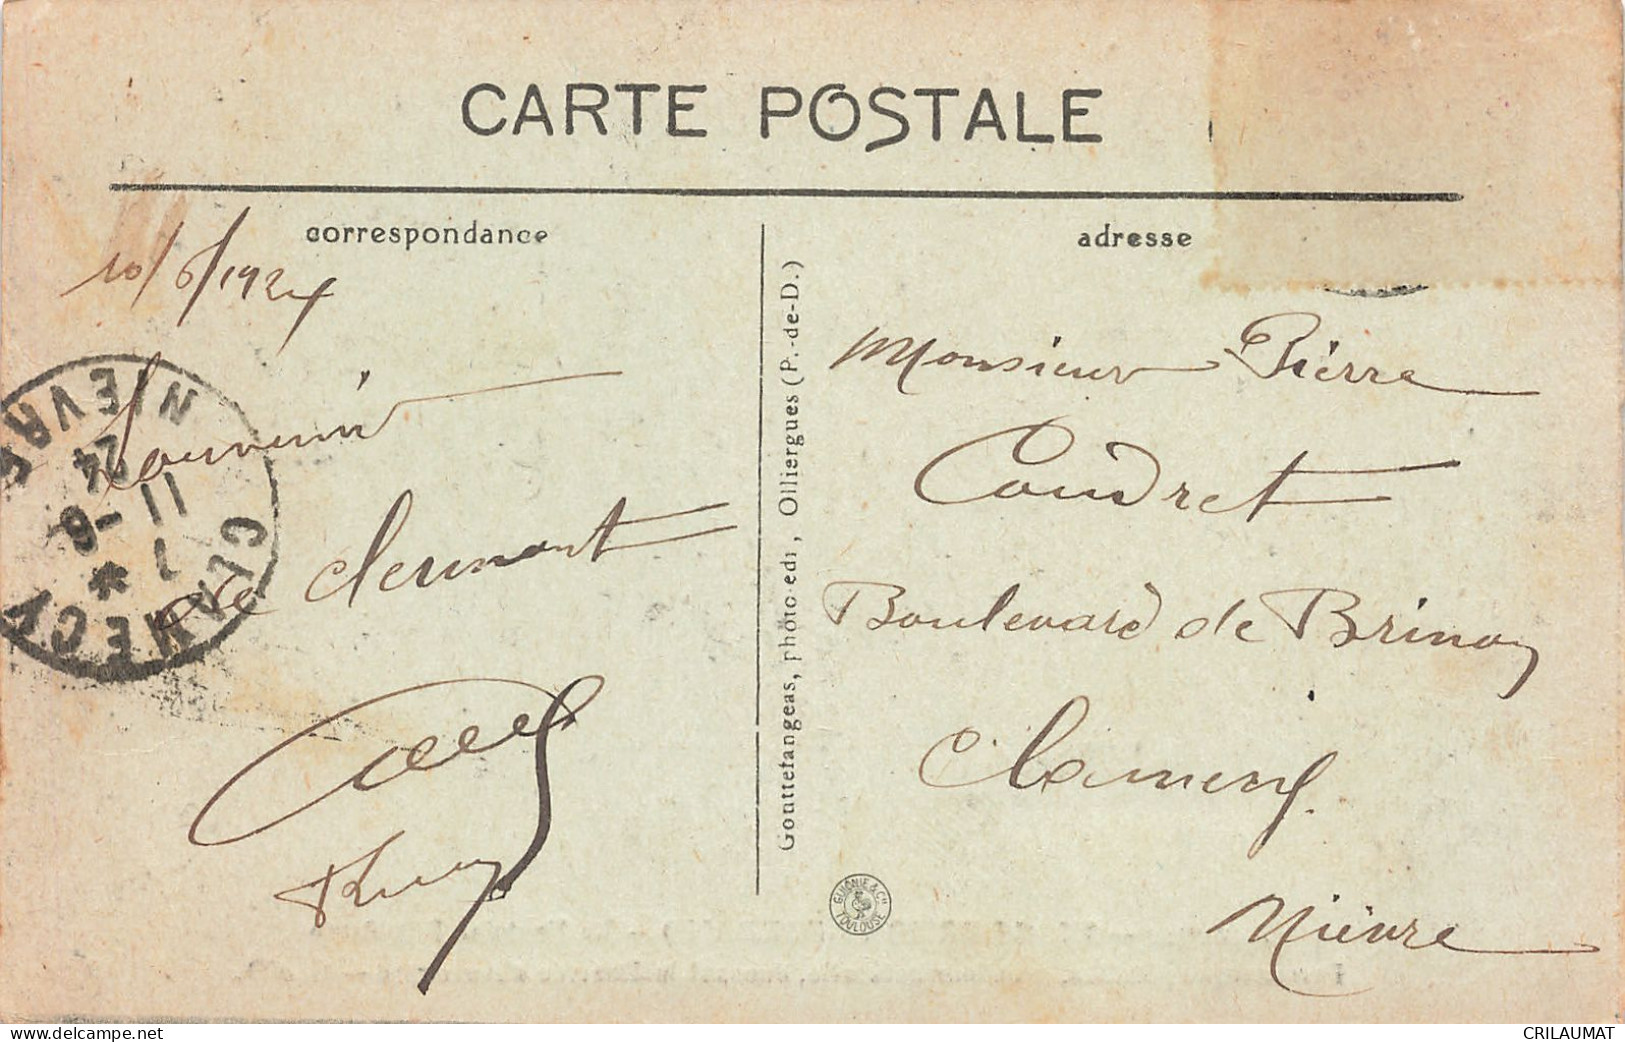 CARTE POSTALE
correspondance
adresse
10/6/1924
Souvenir
de Clermont
Gouttefangeas, photo edi, Olliergues (P.-de-D.)
Monsieur Pierre
Coudret
Boulevard de Brinon
Clamecy.
Nièvre
CLAMECY NIEVRE
7 *
11 -6
24
GUIONIE & Cie TOULOUSE
www.delcampe.net
CRILAUMAT